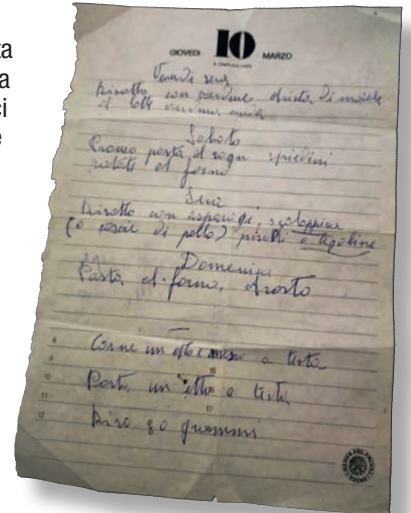 ta
a
ci
e
GIOVEDI 10 MARZO
Venerdì sera
Risotto con verdure Arista di maiale
al latte
Sabato
Pranzo pasta al ragù spiedini
patate al forno
Sera
Risotto con asparagi, scaloppine
(o cosce di pollo) piselli o tegoline
Domenica
Pasta al forno, Arosto
8
Carne un etto e mezzo a testa
9
16
10
Pasta un etto a testa
11
17
12
Riso 80 grammi